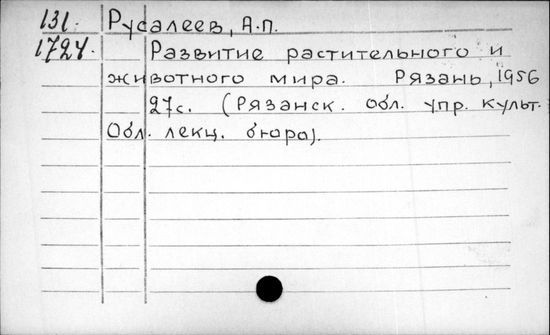 131. Русалеев, А.П.
1724. Развитие растительного и
животного мира. Рязань, 1956
27с. (Рязанск. обл. упр. культ.
Обл. лекц. бюро).